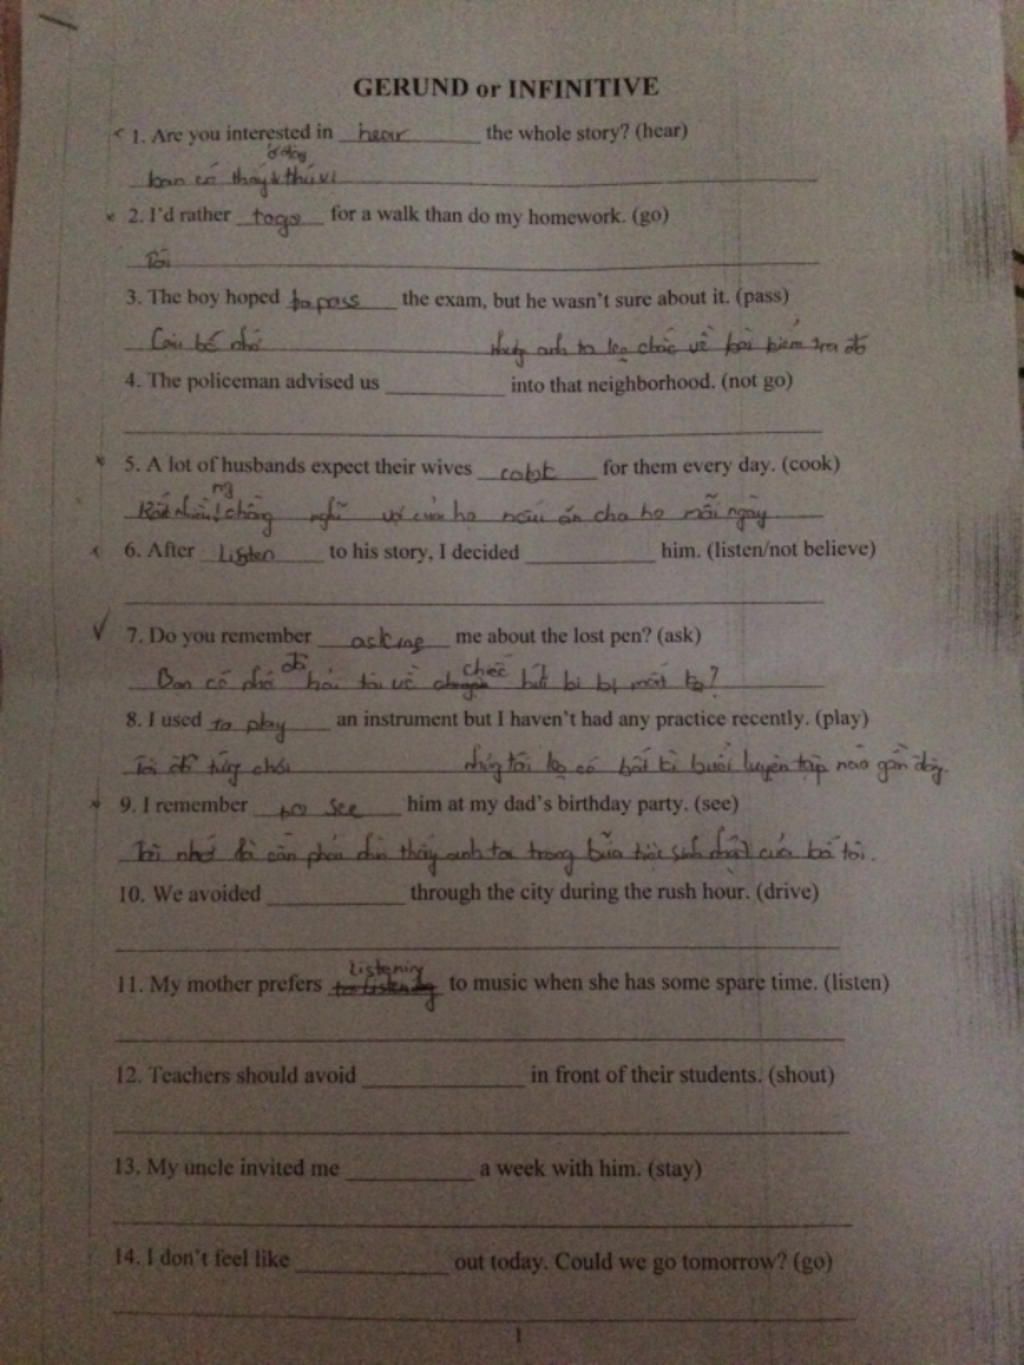 GERUND or INFINITIVE
1. Are you interested in hear the whole story? (hear)
bạn có thấy thú vị
2. I'd rather to go for a walk than do my homework. (go)
Tôi
3. The boy hoped to pass the exam, but he wasn't sure about it. (pass)
Cậu bé anh ta chắc về bài kiểm tra đó
4. The policeman advised us ______ into that neighborhood. (not go)
5. A lot of husbands expect their wives cook for them every day. (cook)
Rất nhiều chồng nghĩ vợ của họ nấu ăn cho họ mỗi ngày
6. After Listen to his story, I decided ______ him. (listen/not believe)
7. Do you remember asking me about the lost pen? (ask)
Bạn có nhớ đã hỏi tôi về chiếc bút bi bị mất ko?
8. I used to play an instrument but I haven't had any practice recently. (play)
Tôi đã từng chơi nhưng tôi ko có bất kì buổi luyện tập nào gần đây.
9. I remember to see him at my dad's birthday party. (see)
Tôi nhớ là cần phải nhìn thấy anh ta trong bữa tiệc sinh nhật của bố tôi.
10. We avoided ______ through the city during the rush hour. (drive)
11. My mother prefers Listening to music when she has some spare time. (listen)
12. Teachers should avoid ______ in front of their students. (shout)
13. My uncle invited me ______ a week with him. (stay)
14. I don't feel like ______ out today. Could we go tomorrow? (go)
1